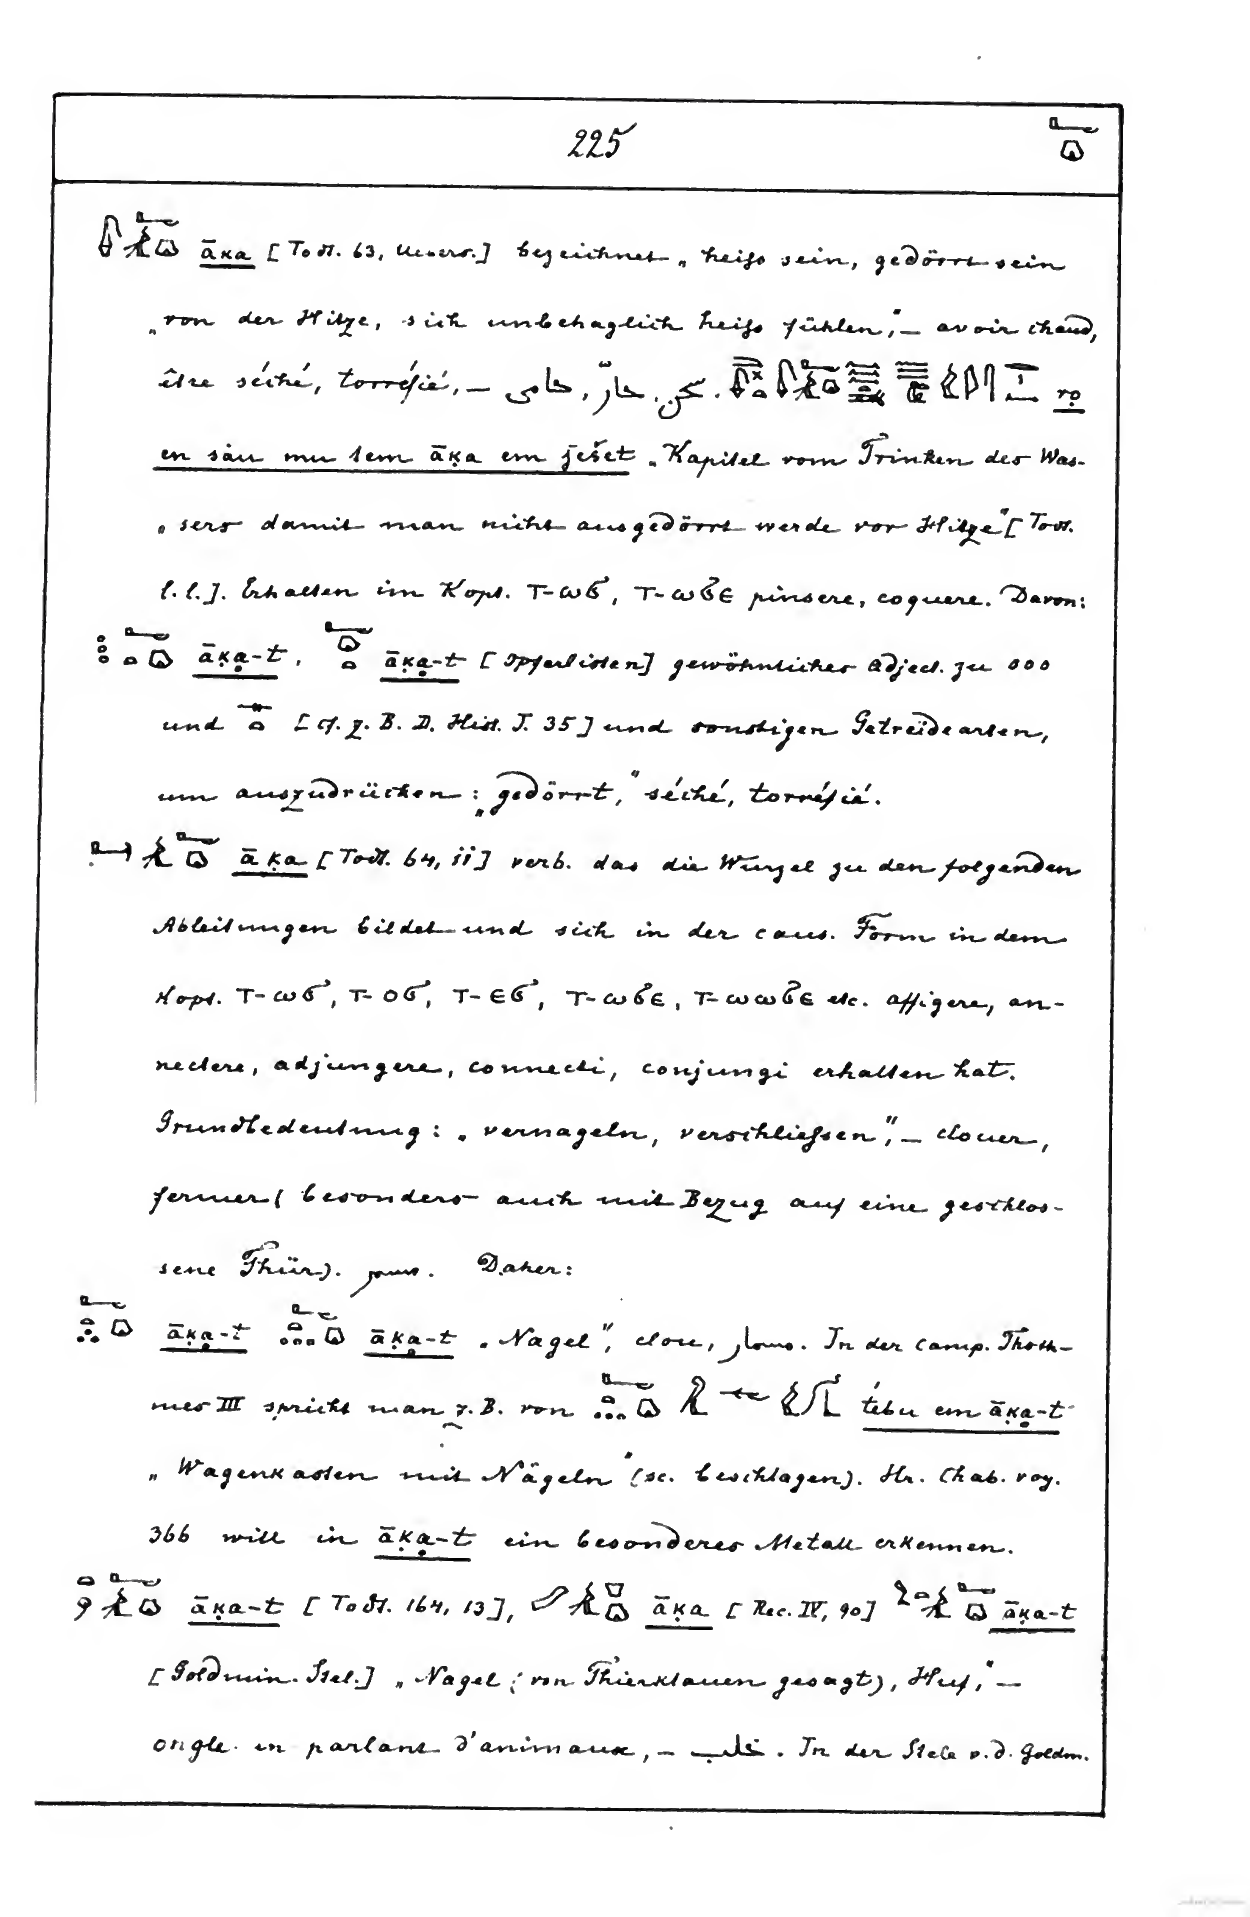 225
āḳa [Todt. 63, Uevers.] bezeichnet „heiſs sein, gedörrt sein
„von der Hitze, sich unbehaglich heiſs fühlen,“ — avoir chaud,
être séché, torréfié, — حامى, حارّ, سخن. ro
en sàu mu tem āḳa em ješet „Kapitel vom Trinken des Was-
„sers damit man nicht ausgedörrt werde vor Hitze“ [Todt.
l. l.]. Erhalten im Kopt. ⲧ-ⲱϭ, ⲧ-ⲱϭⲉ pinsere, coquere. Davon:
āḳa-t, āḳa-t [Opferlisten] gewöhnliches Adject. zu °°°
und [cf. z. B. D. Hist. I. 35] und sonstigen Getreidearten,
um auszudrücken: „gedörrt,“ séché, torréfié.
āḳa [Todt. 64, ii] verb. das die Wurzel zu den folgenden
Ableitungen bildet und sich in der caus. Form in dem
Kopt. ⲧ-ⲱϭ, ⲧ-ⲟϭ, ⲧ-ⲉϭ, ⲧ-ⲱϭⲉ, ⲧ-ⲱⲱϭⲉ etc. affigere, an-
nectere, adjungere, connecti, conjungi erhalten hat.
Grundbedeutung: „vernageln, verschlieſsen“, — clouer,
fermer (besonders auch mit Bezug auf eine geschlos-
sene Thür). سمر. Daher:
āḳa-t āḳa-t „Nagel“, clou, مسمار. In der Camp. Thoth-
mes III spricht man z. B. von tébu em āḳa-t
„Wagenkasten mit Nägeln“ (sc. beschlagen). Hr. Chab. voy.
366 will in āḳa-t ein besonderes Metall erkennen.
āḳa-t [Todt. 164, 13], āḳa [Rec. IV, 90] āḳa-t
[Goldmin. Stel.] „Nagel (von Thierklauen gesagt), Huf,“ —
ongle en parlant d'animaux, — مخلب. In der Stele v. d. Goldm.